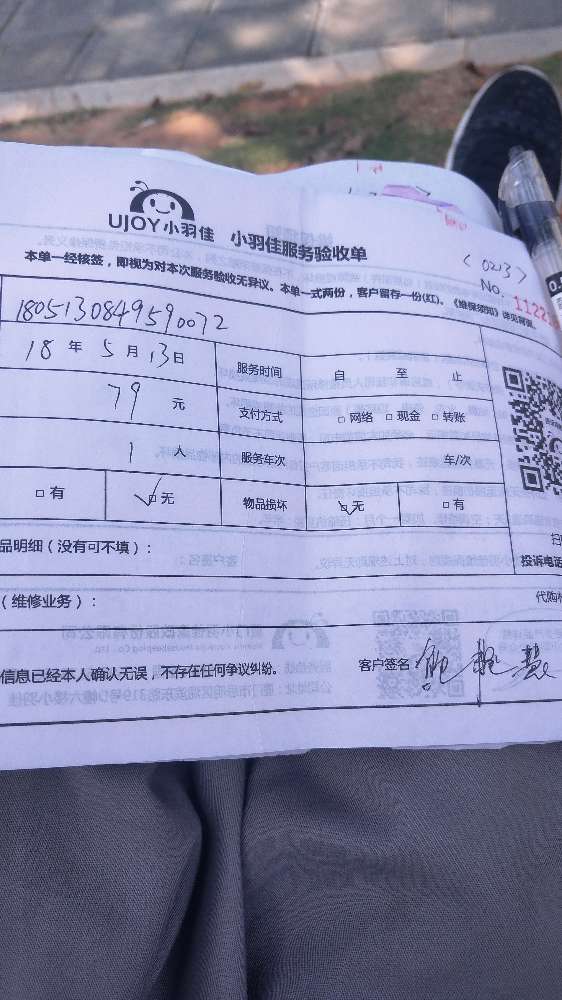 UJOY小羽佳 小羽佳服务验收单
(0213)
本单一经核签，即视为对本次服务验收无异议。本单一式两份，客户留存一份(红)。《维保须知》详见背面。
No. 1122
1805130849590072
18 年 5 月 13 日 服务时间 自 至 止
79 元 支付方式 □ 网络 □ 现金 □ 转账
1 人 服务年次 年/次
□ 有 □ 无 物品损坏 □ 无 □ 有
品明细（没有可不填）：
投诉电话
（维修业务）：
代购
信息已经本人确认无误，不存在任何争议纠纷。
客户签名